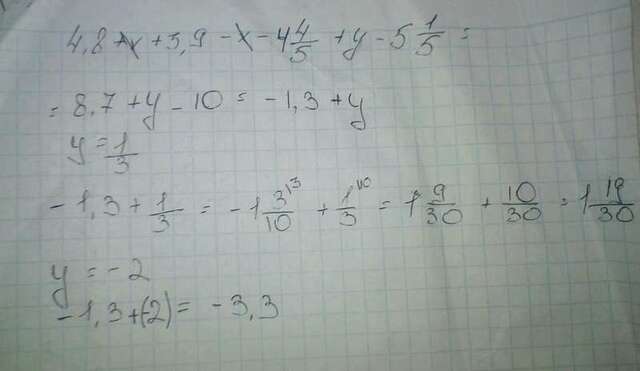 4,8 + x + 3,9 - x - 4 4/5 + y - 5 1/5 =
= 8,7 + y - 10 = -1,3 + y
y = 1/3
-1,3 + 1/3 = -1 3^13/10 + 1^10/3 = 1 9/30 + 10/30 = 1 19/30
y = -2
-1,3 + (-2) = -3,3